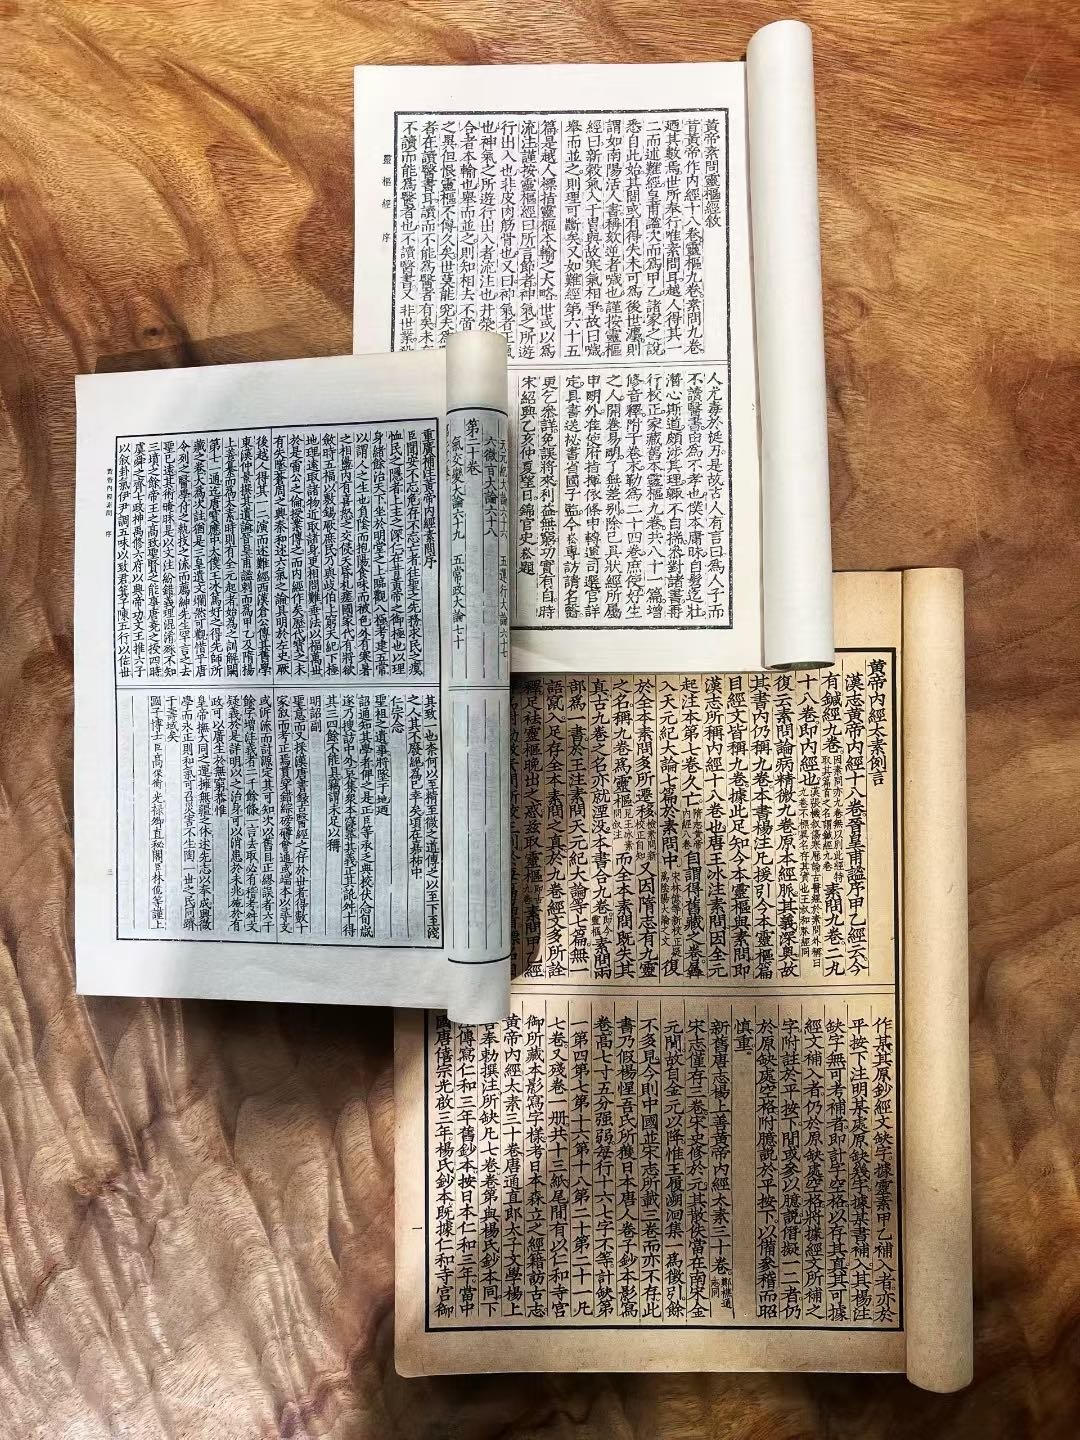 黃帝素問靈樞經敘
昔黃帝作內經十八卷靈樞九卷素問九卷
廼其數焉世所奉行唯素問耳越人得其一
二而述難經皇甫謐次而為甲乙諸家之說
悉自此始其間或有得失未可為後世灋則
謂如南陽活人書稱欬逆者噦也謹按靈樞
經曰新穀氣入于胃與故寒氣相爭故曰噦
舉而並之則理可斷矣又如難經第六十五
篇是越人標指靈樞本輸之大略世或以為
流注謹按靈樞經曰所言節者神氣之所遊
行出入也非皮肉筋骨也又曰神氣者正氣
也神氣之所遊行出入者流注也井滎
合者本輸也舉而並之則知相去不啻
之異但恨靈樞不傳久矣世莫能究夫為
者在讀醫書耳讀而不能為醫者有矣未有
不讀而能為醫者也不讀醫書又非世業殺
人尤毒於挺刃是故古人有言曰為人子而
不讀醫書由為不孝也僕本庸昧自髫迄壯
潛心斯道頗涉其理輒不自揣參對諸書再
行校正家藏舊本靈樞九卷共八十一篇增
修音釋附于卷末勒為二十四卷庶使好生
之人開卷易明了無差別除已具狀經所屬
申明外准使府指揮依條申轉運司選官詳
定具書送秘書省國子監今崧專訪請名醫
更乞參詳免誤將來利益無窮功實有自時
宋紹興乙亥仲夏望日錦官史崧題
靈樞經 序
天元紀大論六十六 五運行大論六十七
六微旨大論六十八
第二十卷
氣交變大論六十九 五常政大論七十
重廣補注黃帝內經素問序
臣聞安不忘危存不忘亡者往聖之先務求民之瘼
恤民之隱者上主之深仁在昔黃帝之御極也以理
身緒餘治天下坐於明堂之上臨觀八極考建五常
以謂人之生也負陰而抱陽食味而被色外有寒暑
之相盪內有喜怒之交侵夭昏札瘥國家代有將欲
斂時五福以敷錫厥庶民乃與岐伯上窮天紀下極
地理遠取諸物近取諸身更相問難垂法以福萬世
於是雷公之倫授業傳之而內經作矣歷代寶之未
有失墜蒼周之興秦和述六氣之論具明於左史厥
後越人得其一二演而述難經西漢倉公傳其舊學
東漢仲景撰其遺論晉皇甫謐刺而為甲乙及隋楊
上善纂而為太素時則有全元起者始為之訓解闕
第七一通迄唐寶應中太僕王冰篤好之得先師所
藏之卷大為次註猶是三皇遺文爛然可觀惜乎唐
令列之醫學付之執技之流而薦紳先生罕言之去
聖已遠其術晻昧是以文注紛錯義理混淆殊不知
三墳之餘帝王之高致聖賢之能事唐堯之授四時
虞舜之齊七政神禹修六府以興帝功文王推六子
以敘卦氣伊尹調五味以致君箕子陳五行以佐世
其致一也奈何以至精至微之道傳之以至下至淺
之人其不廢絕為已幸矣頃在嘉祐中
仁宗念
聖祖之遺事將墜于地迺
詔通知其學者俾之是正臣等承乏典校伏念旬歲
遂乃搜訪中外裒集眾本寖尋其義正其訛舛十得
其三四餘不能具竊謂未足以稱
明詔副
聖意而又採漢唐書錄古醫經之存於世者得數十
家敘而考正焉貫穿錯綜磅礴會通或端本以尋支
或泝流而討源定其可知次以舊目正繆誤者六千
餘字增注義者二千餘條一言去取必有稽考舛文
疑義於是詳明以之治身可以消患於未兆施於有
政可以廣生於無窮恭惟
皇帝撫大同之運擁無疆之休述先志以奉成興微
學而永正則和氣可召災害不生陶一世之民同躋
于壽域矣
國子博士臣高保衡 光祿卿直秘閣臣林億等謹上
黃帝內經素問 序
三
黃帝內經太素例言
漢志黃帝內經十八卷晉皇甫謐序甲乙經云今
有鍼經九卷素問九卷二九
十八卷即內經也
復云素問論病精微九卷原本經脈其義深奧故
其書內仍稱九卷本書楊注凡援引今本靈樞篇
目經文皆稱九卷據此足知今本靈樞與素問即
漢志所稱內經十八卷也唐王冰注素問因全元
起注本第七卷久亡自謂得舊藏之卷彝
入天元紀大論七篇於素問中復
於全本素問多所遷移又因隋志有九靈
之名稱九卷為靈樞而全本素問既失其
真古九卷之名亦就湮没本書合九卷素問兩
部為一書於王注素問天元紀大論等七篇無一
語竄入足存全本素問之真於九卷經文多所詮
釋足袪靈樞晚出之惑茲取靈樞素問甲乙經
作某其原鈔經文缺字據靈素甲乙補入者亦於
平按下注明某處原缺幾字據某書補入其楊注
缺字無可考補者即計字空格以存其真其可據
經文補入者仍於原缺處空格將據經文所補之
字附註於平按下間或參以臆說僭擬一二者仍
於原缺處空格附臆說於平按下以備參稽而昭
慎重
新舊唐志楊上善黃帝內經太素三十卷
宋志僅存三卷宋史修於元其散佚當在南宋金
元間故自金元以降惟王履溯洄集一為徵引餘
不多見今則中國並宋志所載三卷而亦不存此
書乃假楊惺吾氏所獲日本唐人卷子鈔本影寫
卷高七寸五分强弱每行十六七字不等計缺第
一第四第七第十六第十八第二十第二十一凡
七卷又殘卷一册共十三紙尾間有以仁和寺宮
御所藏本影寫字樣考日本森立之經籍訪古志
黃帝內經太素三十卷唐通直郎太子文學楊上
善奉勅撰注所缺凡七卷卷第與楊氏鈔本同下
注傳寫仁和三年舊鈔本按日本仁和三年當中
國唐僖宗光啟三年楊氏鈔本既據仁和寺宮御
一